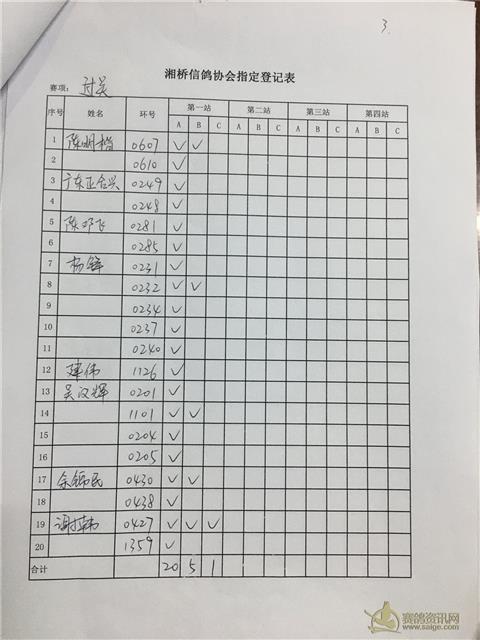 3.
湘桥信鸽协会指定登记表
赛项: 过关
序号 姓名 环号 第一站 第二站 第三站 第四站
A B C A B C A B C A B C
1 陈明楷 0607 ✓ ✓
2 0610 ✓
3 广东正合兴 0249 ✓
4 0248 ✓
5 陈邓飞 0281 ✓
6 0285 ✓
7 杨锋 0231 ✓
8 0232 ✓ ✓
9 0234 ✓
10 0237 ✓
11 0240 ✓
12 建伟 1126 ✓
13 吴汉辉 0201 ✓
14 1101 ✓ ✓
15 0204 ✓
16 0205 ✓
17 余锦民 0430 ✓ ✓
18 0438 ✓
19 谢韩 0427 ✓ ✓ ✓
20 1359 ✓
合计 20 5 1
赛鸽资讯网
www.saige.com